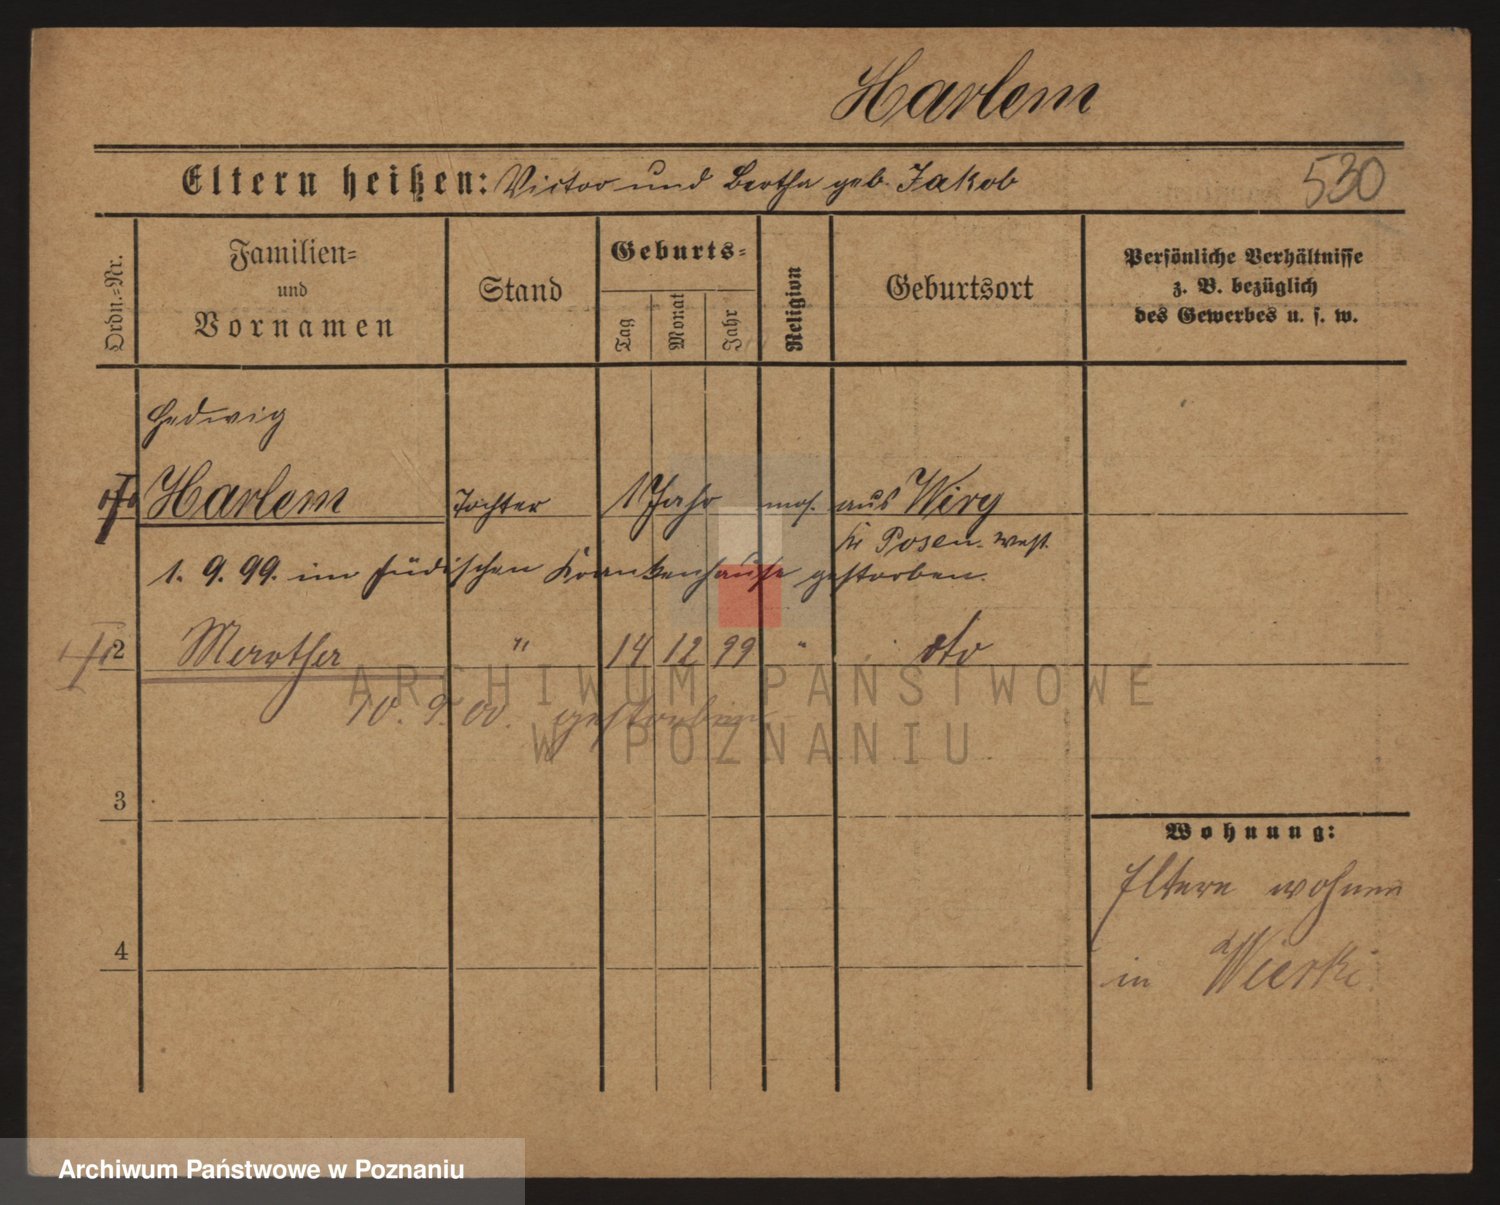 Harlem
Eltern heißen: Victor und Bertha geb. Jakob
530
Ordn.-Nr.
Familien-
und
Vornamen
Stand
Geburts-
Tag
Monat
Jahr
Religion
Geburtsort
Persönliche Verhältnisse
z. B. bezüglich
des Gewerbes u. s. w.
Hedwig
Harlem Tochter 1 Jahr mos. aus Wiry
Kr Posen-West
1. 9. 99. im jüdischen Krankenhause gestorben.
2 Martha " 14 12 99 " dto
10. 9. 00. gestorben
3
4
Wohnung:
Eltern wohnen
in Wierki
ARCHIWUM PAŃSTWOWE
W POZNANIU
Archiwum Państwowe w Poznaniu